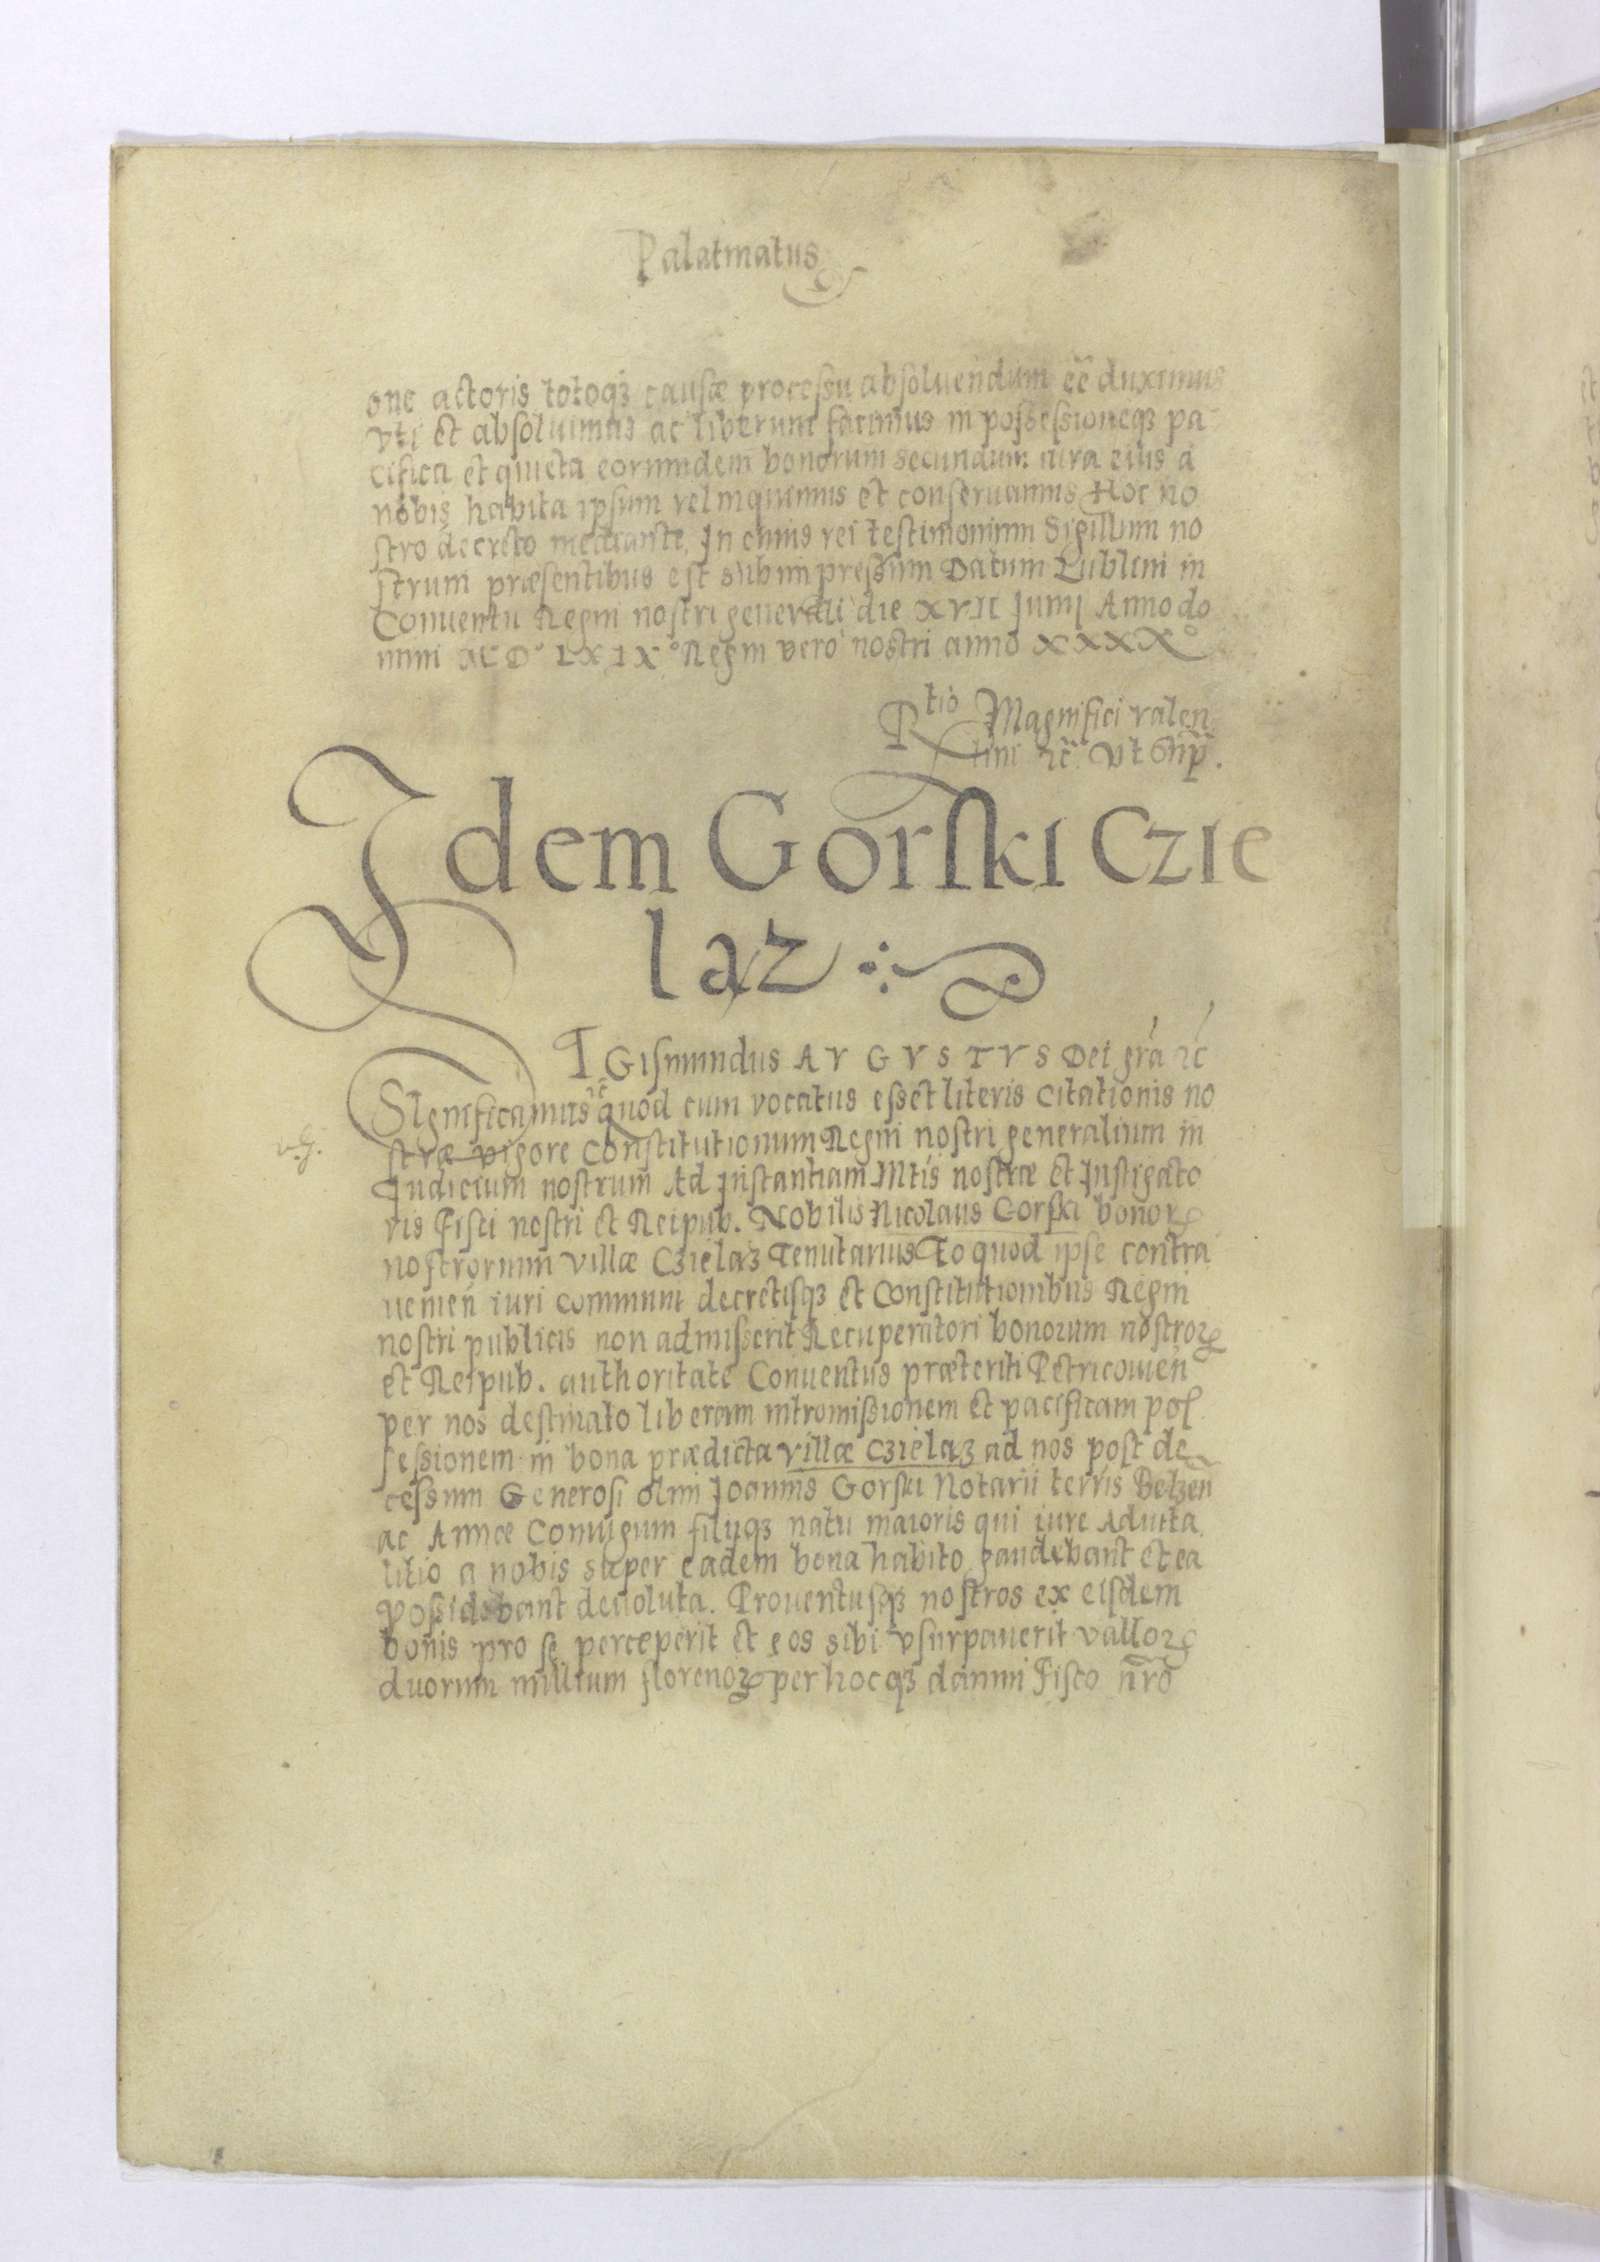 Palatinatus
one actoris totoq3 causæ processu absoluendum eē duximus
vti et absoluimus ac liberum facimus in possessioneq3 pa
cifica et quieta eorumdem bonorum secundum iura eius à
nobis habita ipsum relinquimus et conseruamus Hoc no
stro decreto mediante, In cuius rei testimonium Sigillum no
strum præsentibus est subimpressum Datum Lublini in
Conuentu Regni nostri generali die XVII Junij Anno do
mini MD° LXIX° Regni vero nostri anno XXXX°
Rtio Magnifici valen
tini
Idem Gorski Czie
laz
SIGismundus AVGVSTVS Dei grã
Significamus quod cum vocatus esset literis citationis no
v.G.
stræ vigore Constitutionum Regni nostri generalium in
Judicium nostrum Ad Instantiam Mtis nostræ et Instigato
ris Fisci nostri et Reipub. Nobilis Nicolaus Gorski bonorꝝ
nostrorum villæ Czielaz Tenutarius Eo quod ipse contra
uenien iuri communi decretisq3 et Constitutionibus Regni
nostri publicis non admiserit Recuperatori bonorum nostroꝝ
et Reipub. authoritate Conuentus præteriti Petricouień
per nos destinato liberam intromissionem et pacificam pos
sessionem in bona prædicta villæ Czielaz ad nos post de
cessum Generosi olim Joannis Gorski Notarii terris Belzeń
ac Annæ Coniugum filijq3 natu maioris qui iure Aduita
litio a nobis super eadem bona habito gaudebant et ea
possidebant deuoluta. Prouentusq3 nostros ex eisdem
bonis pro se perceperit et eos sibi vsurpauerit valloꝝ
duorum millium florenoꝝ per hocq3 damni Fisco nr̃o